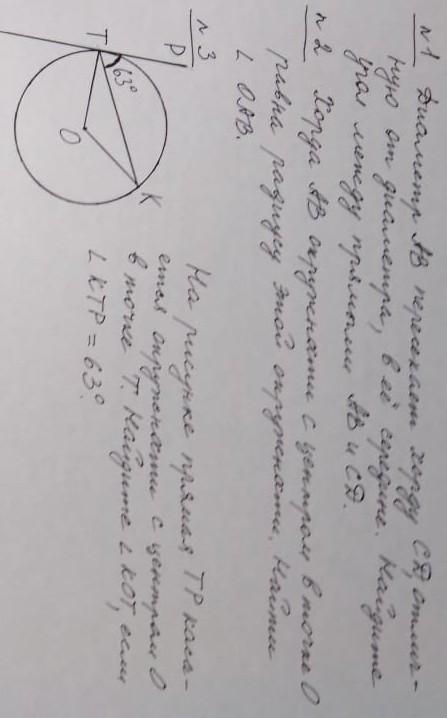 n1 Диаметр AB пересекает хорду CD, отлич-
ную от диаметра, в её середине. Найдите
угол между прямыми AB и CD.
n2 Хорда AB окружности с центром в точке O
равна радиусу этой окружности. Найти
∠ OAB.
n3
T
P
63°
O
K
На рисунке прямая TP каса-
ется окружности с центром O
в точке T. Найдите ∠ KOT, если
∠ KTP = 63°.